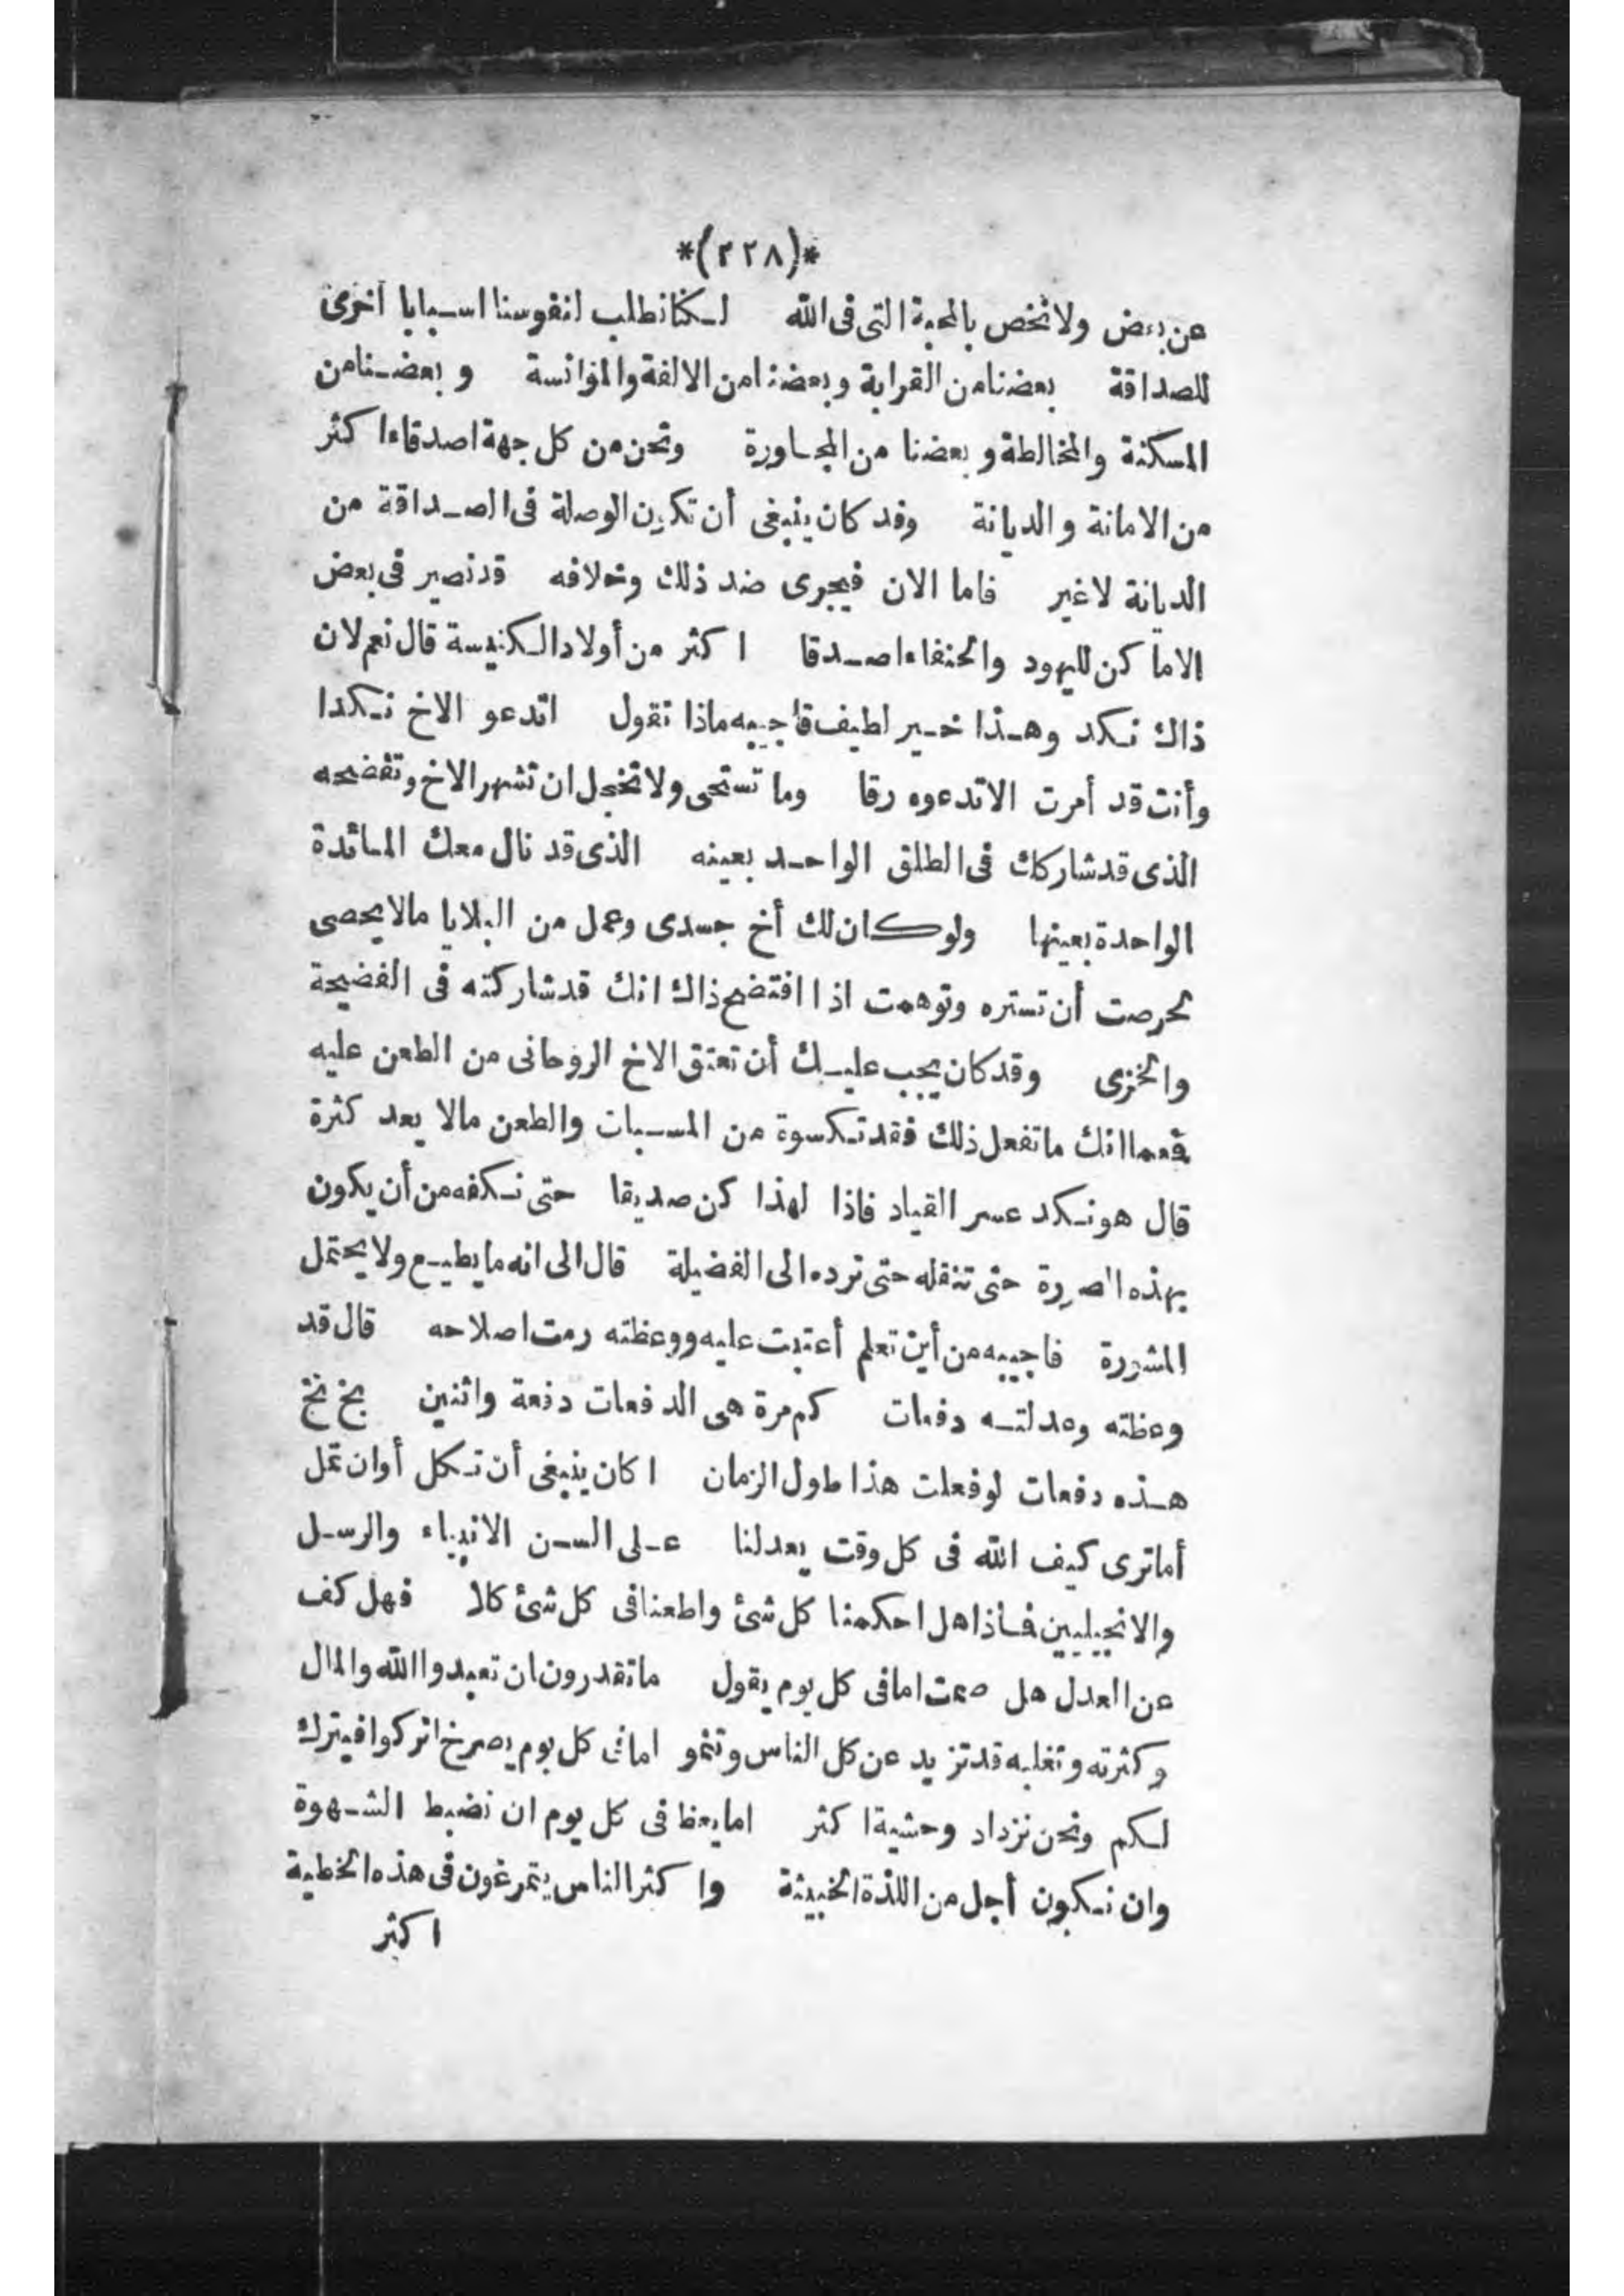 *(٢٢٨)*
عن بعض ولا نخص بالمحبة التى فى الله لكننا نطلب لنفوسنا اسبابا أخرى
للصداقة بعضنا من القرابة وبعضنا من الالفة والمؤانسة و بعضنا من
المسكنة والمخالطة و بعضنا من المجاورة ونحن من كل جهة اصدقاء اكثر
من الامانة والديانة وقد كان ينبغى أن تكون الوصلة فى الصداقة من
الديانة لاغير فاما الان فيجرى ضد ذلك وخلافه قد نصير فى بعض
الاما كن لليهود والحنفاء اصدقا اكثر من أولاد الكنيسة قال نعم لان
ذاك نكد وهذا خير لطيف فاجيبه ماذا تقول اتدعو الاخ نكدا
وأنت قد أمرت الاتدعوه رقا وما تستحى ولا تخجل ان تشهر الاخ وتفضحه
الذى قد شاركك فى الطلق الواحد بعينه الذى قد نال معك المائدة
الواحدة بعينها ولوكان لك أخ جسدى وعمل من البلايا مالا يحصى
لحرصت أن تستره وتوهمت اذا افتضح ذاك انك قد شاركته فى الفضيحة
والخزى وقد كان يجب عليك أن تعتق الاخ الروحانى من الطعن عليه
فمما انك ما تفعل ذلك فقد تكسوة من المسبات والطعن مالا يعد كثرة
قال هو نكد عسر القياد فاذا لهذا كن صديقا حتى نكفه من أن يكون
بهذه الصورة حتى تنقله حتى ترده الى الفضيلة قال الى انه ما يطيع ولا يحتمل
المشورة فاجيبه من أين تعلم أعتبت عليه ووعظته رمت اصلاحه قال قد
وعظته وعدلته دفعات كم مرة هى الدفعات دفعة واثنين بخ بخ
هذه دفعات لو فعلت هذا طول الزمان ا كان ينبغى أن تكل أوان تمل
أما ترى كيف الله فى كل وقت يعدلنا على السن الانبياء والرسل
والانجيليين فاذا هل احكمنا كل شئ واطعنا فى كل شئ كلا فهل كف
عن العدل هل صمت اما فى كل يوم يقول ما تقدرون ان تعبدوا الله والمال
وكثرته وتغلبه قد تزيد عن كل الناس وتنمو اما فى كل يوم يصرخ اتركوا فيترك
لكم ونحن نزداد وحشية اكثر اما يعظ فى كل يوم ان نضبط الشهوة
وان نكون أجل من اللذة الخبيثة وا كثر الناس يتمرغون فى هذه الخطية
اكثر